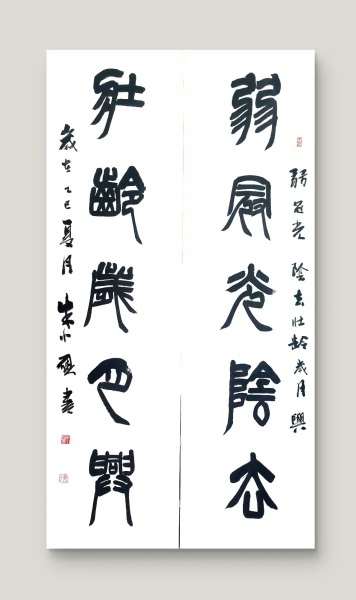 弱冠光陰去壯齡歲月興
弱冠光陰去
壯齡歲月興
歲在乙巳夏月 書